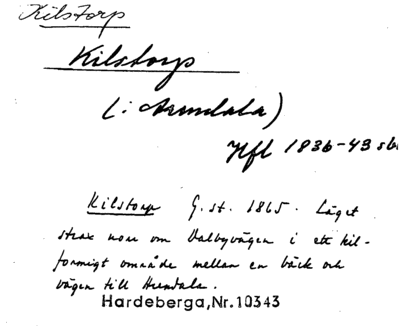 Kilstorp
Kilstorp
(i Arendala)
Hfl 1836-43
Kilstorp G. st. 1865. Läget
strax norr om Dalbyvägen i ett kil-
formigt område mellan en bäck och
vägen till Arendala.
Hardeberga, Nr. 10343